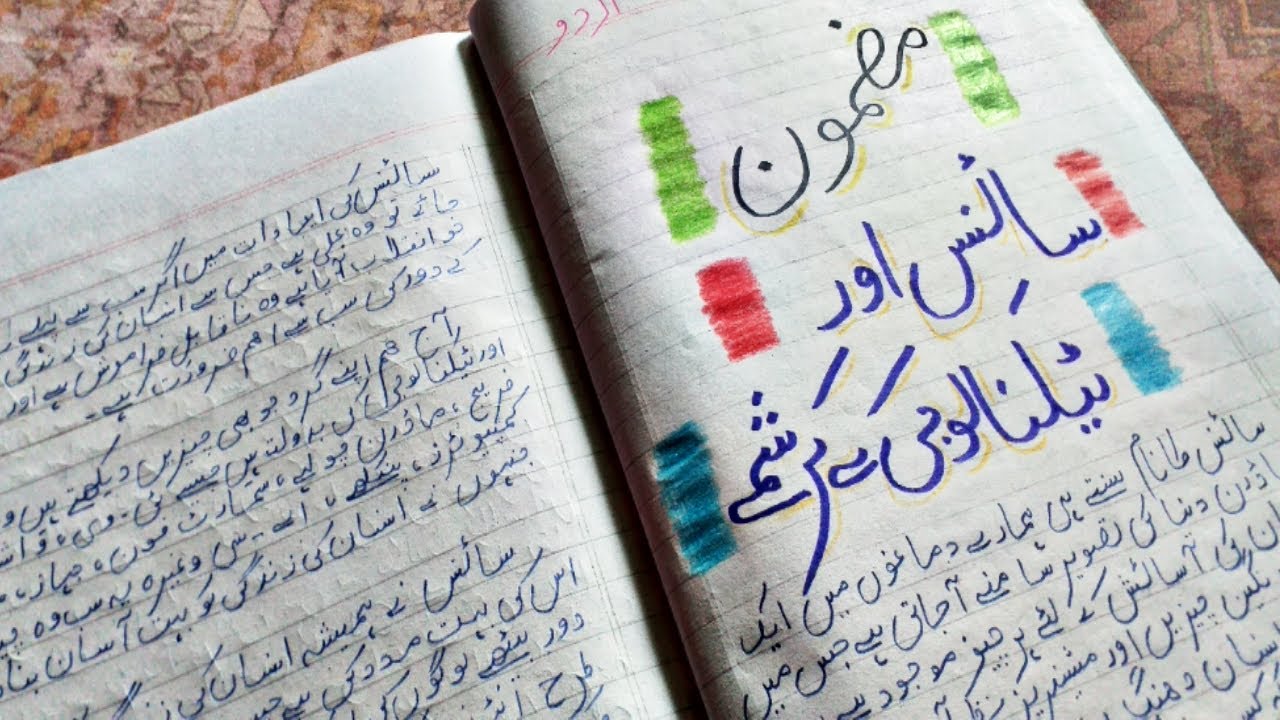 اردو
مضمون
سائنس اور
ٹیکنالوجی کے کرشمے
سائنس کا نام سنتے ہی ہمارے دماغوں میں ایک
ماڈرن دنیا کی تصویر سامنے آجاتی ہے جس میں
کی آسائش کے لئے ہر چیز موجود ہے
چیزیں اور مشینریز
دھنگ
سائنس کی ایجادات میں اگر سب سے پہلے
جائے تو وہ بجلی ہے جس سے انسان کی زندگی
جو انقلاب آیا ہے وہ ناقابل فراموش ہے اور
کے دور کی سب سے اہم ضرورت ہے۔
آج ہم اپنے گرد جو بھی چیزیں دیکھتے ہیں
اور ٹیکنالوجی کی بدولت ہیں جیسے ٹی۔وی،
فریج، ماڈرن چولہے، سمارٹ فون، جہاز،
کمپیوٹرز، پنکھے، اے۔سی وغیرہ یہ سب وہ
جنہوں نے انسان کی زندگی کو بہت آسان
سائنس نے ہمیشہ انسان کی
اس کی بہت مدد کی ہے
دور بیٹھے لوگوں کی
طرح